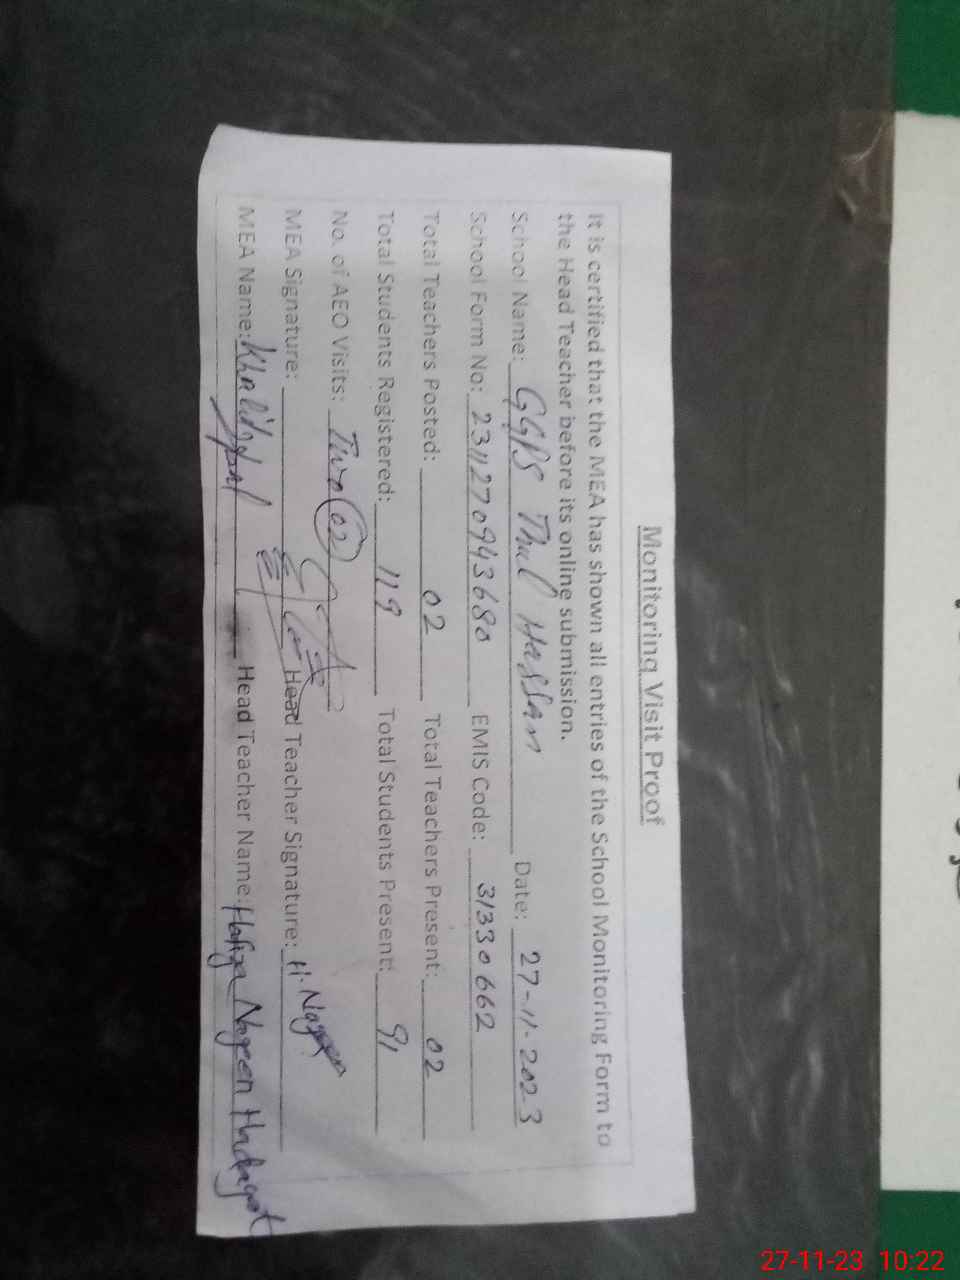 Monitoring Visit Proof
It is certified that the MEA has shown all entries of the School Monitoring Form to
the Head Teacher before its online submission.
School Name: GGPS Thul Hassan Date: 27-11-2023
School Form No: 2311270943680 EMIS Code: 31330662
Total Teachers Posted: 02 Total Teachers Present: 02
Total Students Registered: 119 Total Students Present: 91
No. of AEO Visits: Two 02
MEA Signature: Head Teacher Signature: H. Nageen
MEA Name: Khalid Head Teacher Name: Hafiza Nageen
27-11-23 10:22